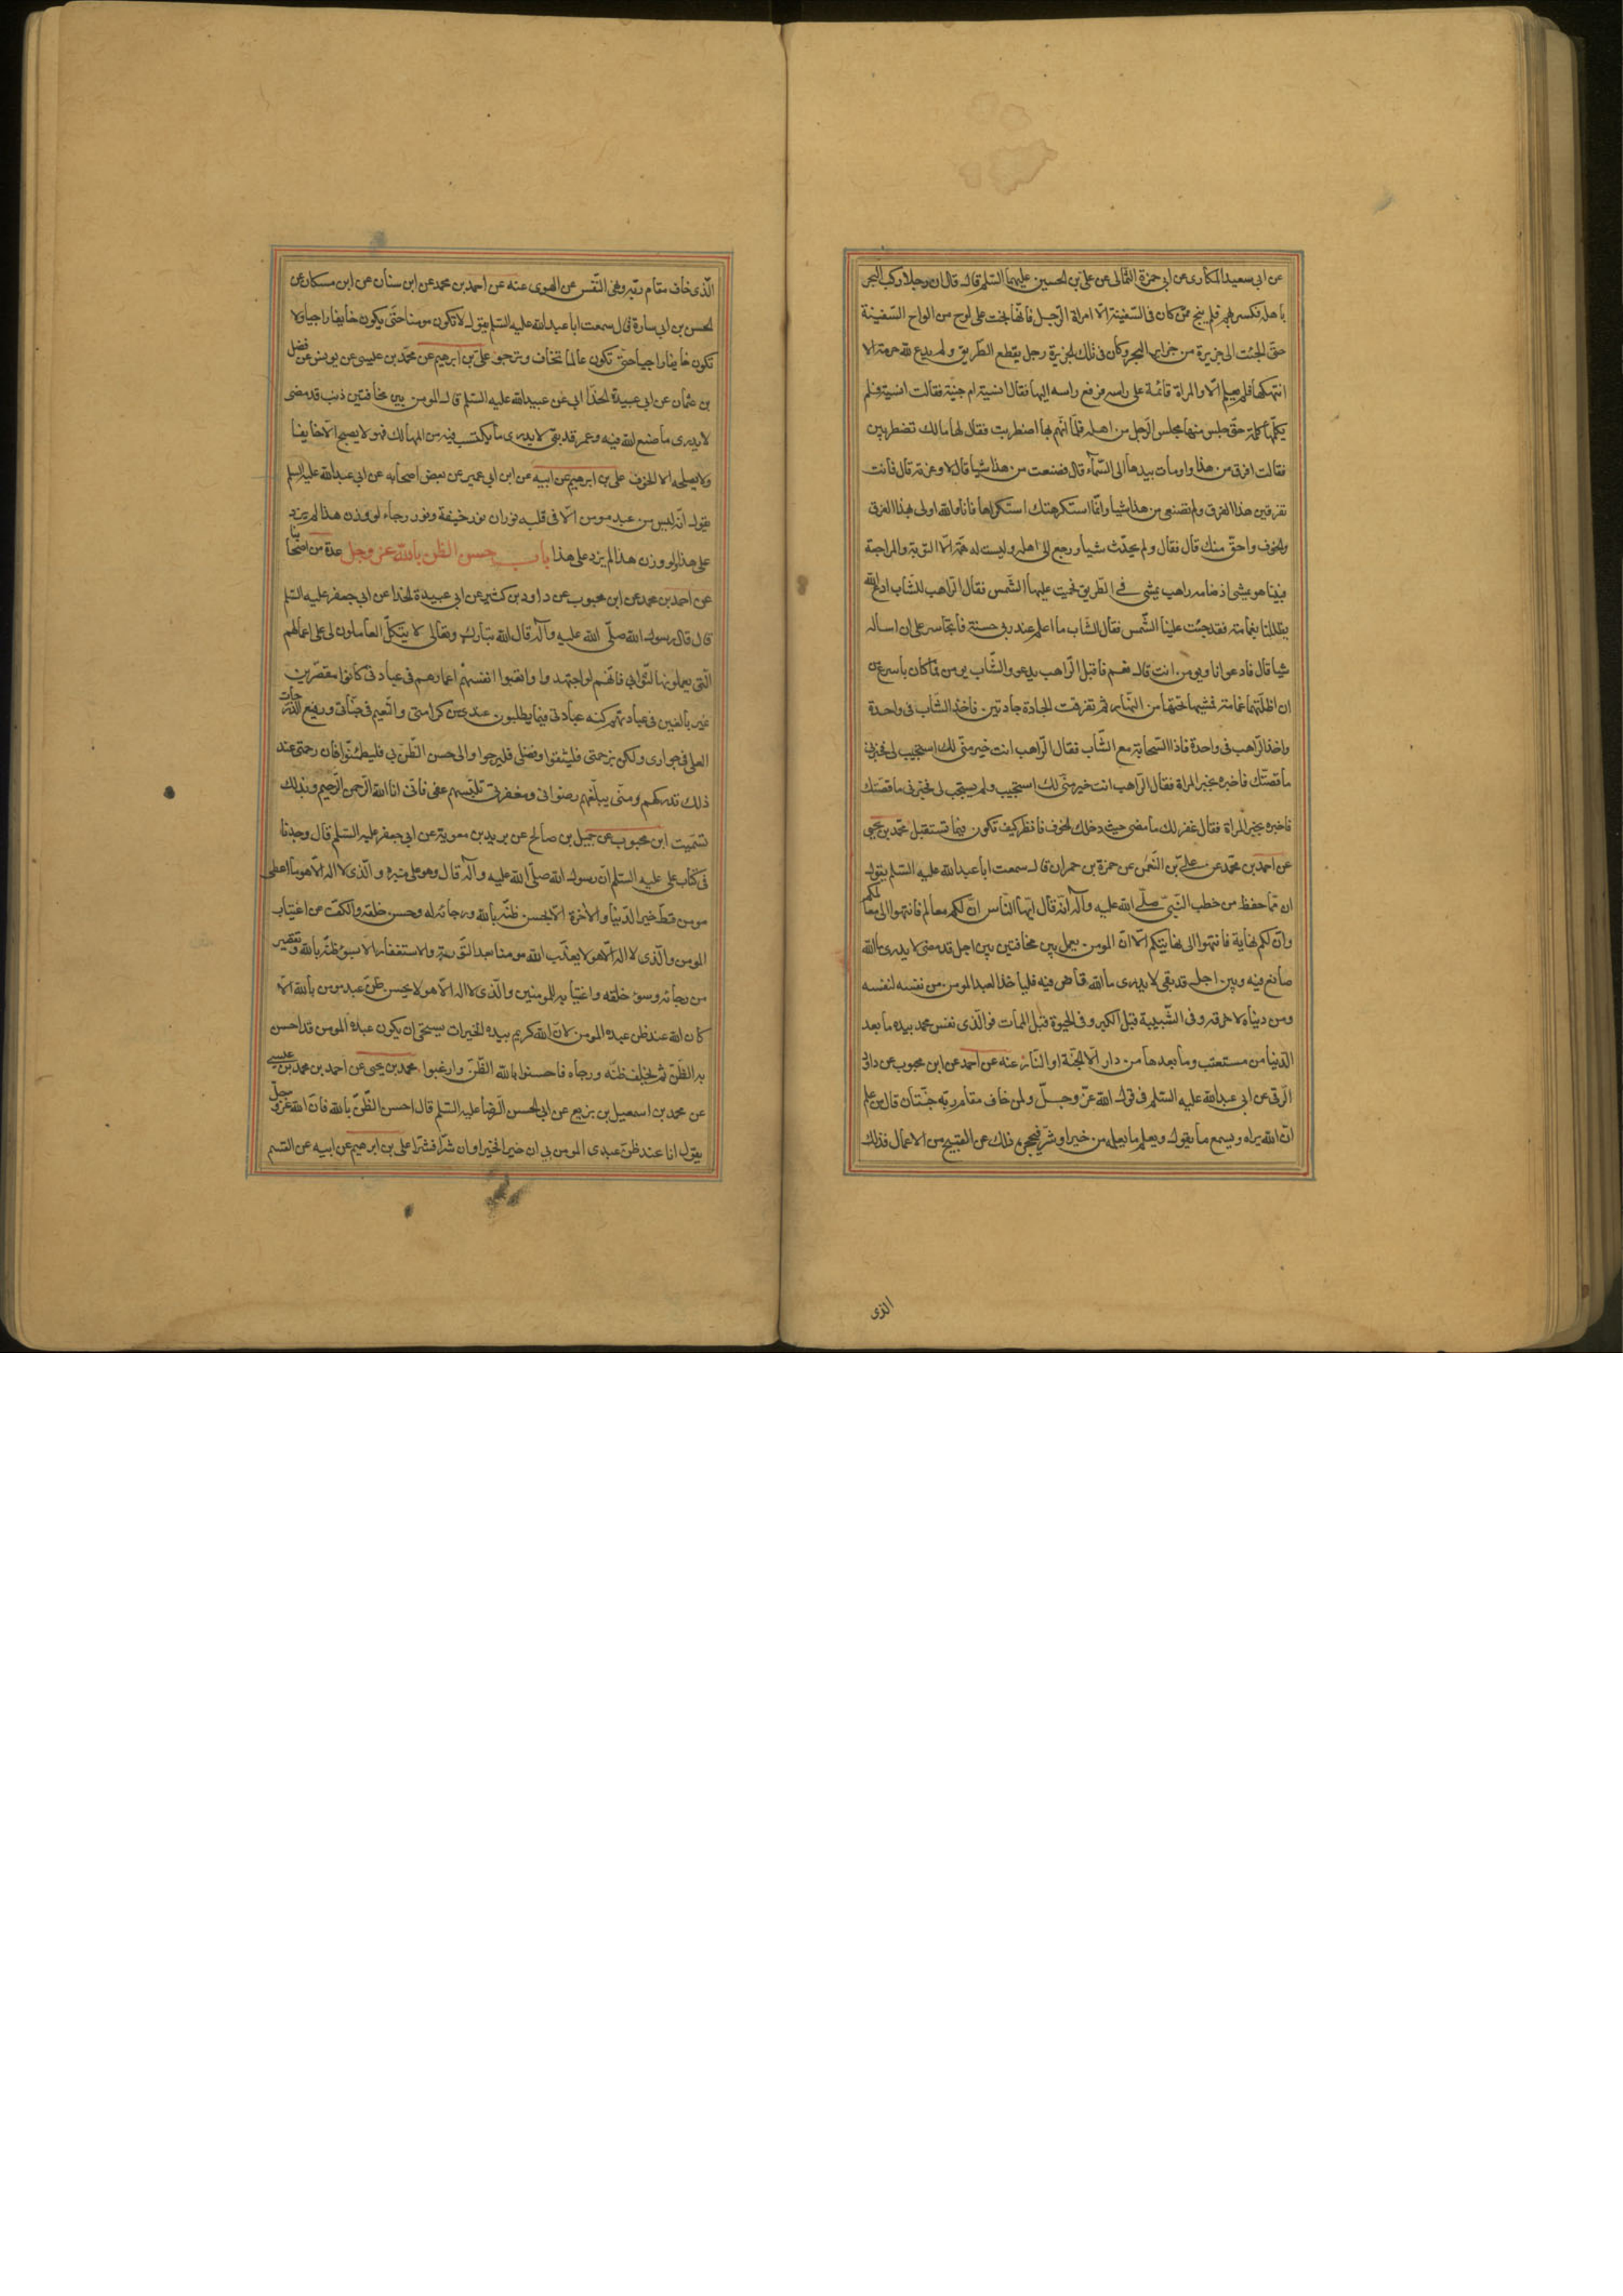 عن ابي سعيد المكاري عن ابي حمزة الثمالي عن علي بن الحسين عليهما السلم قال قال ان رجلا ركب البحر
باهله فكسر بهم فلم ينج ممن كان في السفينة الا امراة الرجل فانها نجت على لوح من الواح السفينة
حتى الجئت الى جزيرة من جزاير البحر وكان في تلك الجزيرة رجل يقطع الطريق ولم يدع لله حرمة الا
انتهكها فلم يعلم الا والمراة قائمة على راسه فرفع راسه اليها فقال انسية ام جنية فقالت انسية فلم
يكلمها كلمة حتى جلس منها مجلس الرجل من اهله فلما ان هم بها اضطربت فقال لها مالك تضطربين
فقالت افرق من هذا واومات بيدها الى السماء قال فصنعت من هذا شيا قال لا وعزته قال فانت
تفرقين هذا الفرق ولم تصنعي من هذا شيا وانما استكرهتك استكراها فانا والله اولى بهذا الفرق
والخوف واحق منك قال فقال ولم يحدث شيا ورجع الى اهله وليست له همة الا التوبة والمراجعة
فبينا هو يمشي اذ صادفه راهب يمشي في الطريق فحميت عليهما الشمس فقال الراهب للشاب ادع الله
يظللنا بغمامة فقد حميت علينا الشمس فقال الشاب ما اعلم عند ربي حسنة فاتجاسر على ان اساله
شيا قال فادعو انا وتومن انت قال نعم فاقبل الراهب يدعو والشاب يومن فما كان باسرع من
ان اظلتهما غمامة فمشيا تحتها من النهار ثم تفرقت الجادة جادتين فاخذ الشاب في واحدة
واخذ الراهب في واحدة فاذا السحابة مع الشاب فقال الراهب انت خير مني لك استجيب لي فخبرني
ما قصتك فاخبره بخبر المراة فقال الراهب انت خير مني لك استجيب ولم يستجب لي فخبرني ما قصتك
فاخبره بخبر المراة فقال غفر لك ما مضى حيث دخلك الخوف فانظر كيف تكون فيما تستقبل محمد بن يحيى
عن احمد بن محمد عن علي بن النعمن عن حمزة بن حمران قال سمعت ابا عبد الله عليه السلم يقول
ان مما حفظ من خطب النبي صلى الله عليه وآله انه قال ايها الناس ان لكم معالم فانتهوا الى معالمكم
وان لكم نهاية فانتهوا الى نهايتكم الا ان المومن يعمل بين مخافتين بين اجل قد مضى لا يدرى ما الله
صانع فيه وبين اجل قد بقي لا يدرى ما الله قاض فيه فلياخذ العبد المومن من نفسه لنفسه
ومن دنياه لاخرته وفي الشبيبة قبل الكبر وفي الحيوة قبل الممات فوالذي نفس محمد بيده ما بعد
الدنيا من مستعتب وما بعدها من دار الا الجنة او النار عنه عن احمد عن ابن محبوب عن داود
الرقي عن ابي عبد الله عليه السلم في قول الله عز وجل ولمن خاف مقام ربه جنتان قال من علم
ان الله يراه ويسمع ما يقول ويعلم ما يعمله من خير او شر فيحجزه ذلك عن القبيح من الاعمال فذلك
الذى
الذي خاف مقام ربه ونهى النفس عن الهوى عنه عن احمد بن محمد عن ابن سنان عن ابن مسكان عن
الحسن بن ابي سارة قال سمعت ابا عبد الله عليه السلم يقول لا تكون مومنا حتى يكون خايفا راجيا ولا
تكون خايفا راجيا حتى تكون عاملا لما تخاف وترجو علي بن ابرهيم عن محمد بن عيسى عن يونس عن فضل
بن عثمان عن ابي عبيدة الحذا ابي عن عبيد الله عليه السلم قال المومن بين مخافتين ذنب قد مضى
لا يدرى ما صنع الله فيه وعمر قد بقي لا يدرى ما يكتسب فيه من المهالك فهو لا يصبح الا خايفا
ولا يصلحه الا الخوف علي بن ابرهيم عن ابيه عن ابن ابي عمير عن بعض اصحابه عن ابي عبد الله عليه السلم
يقول انه ليس من عبد مومن الا في قلبه نوران نور خيفة ونور رجاء لو وزن هذا لم يزد
على هذا ولو وزن هذا لم يزد على هذا باب حسن الظن بالله عز وجل عدة من اصحابنا
عن احمد بن محمد عن ابن محبوب عن داود بن كثير عن ابي عبيدة الحذا عن ابي جعفر عليه السلم
قال قال رسول الله صلى الله عليه وآله قال الله تبارك وتعالى لا يتكل العاملون لي على اعمالهم
التي يعملونها لثوابي فانهم لو اجتهدوا واتعبوا انفسهم اعمارهم في عبادتي كانوا مقصرين
غير بالغين في عبادتهم كنه عبادتي فيما يطلبون عندي من كرامتي والنعيم في جناتي ورفيع الدرجات
العلى في جواري ولكن برحمتي فليثقوا وفضلي فليرجوا والى حسن الظن بي فليطمئنوا فان رحمتي عند
ذلك تدركهم ومني يبلغهم رضواني ومغفرتي تلبسهم عفوي فاني انا الله الرحمن الرحيم وبذلك
تسميت ابن محبوب عن جميل بن صالح عن بريد بن معوية عن ابي جعفر عليه السلم قال وجدنا
في كتاب علي عليه السلم ان رسول الله صلى الله عليه وآله قال وهو على منبره والذي لا اله الا هو ما اعطي
مومن قط خير الدنيا والاخرة الا بحسن ظنه بالله ورجائه له وحسن خلقه والكف عن اغتياب
المومن والذي لا اله الا هو لا يعذب الله مومنا بعد التوبة والاستغفار الا بسوء ظنه بالله وتقصير
من رجائه وسوء خلقه واغتيابه للمومنين والذي لا اله الا هو لا يحسن ظن عبد مومن بالله الا
كان الله عند ظن عبده المومن لان الله كريم بيده الخيرات يستحيي ان يكون عبده المومن قد احسن
به الظن ثم يخلف ظنه ورجاه فاحسنوا بالله الظن وارغبوا محمد بن يحيى عن احمد بن محمد بن عيسى
عن محمد بن اسمعيل بن بزيع عن ابي الحسن الرضا عليه السلم قال احسن الظن بالله فان الله عز وجل
يقول انا عند ظن عبدي المومن بي ان خيرا فخيرا وان شرا فشرا علي بن ابرهيم عن ابيه عن القسم